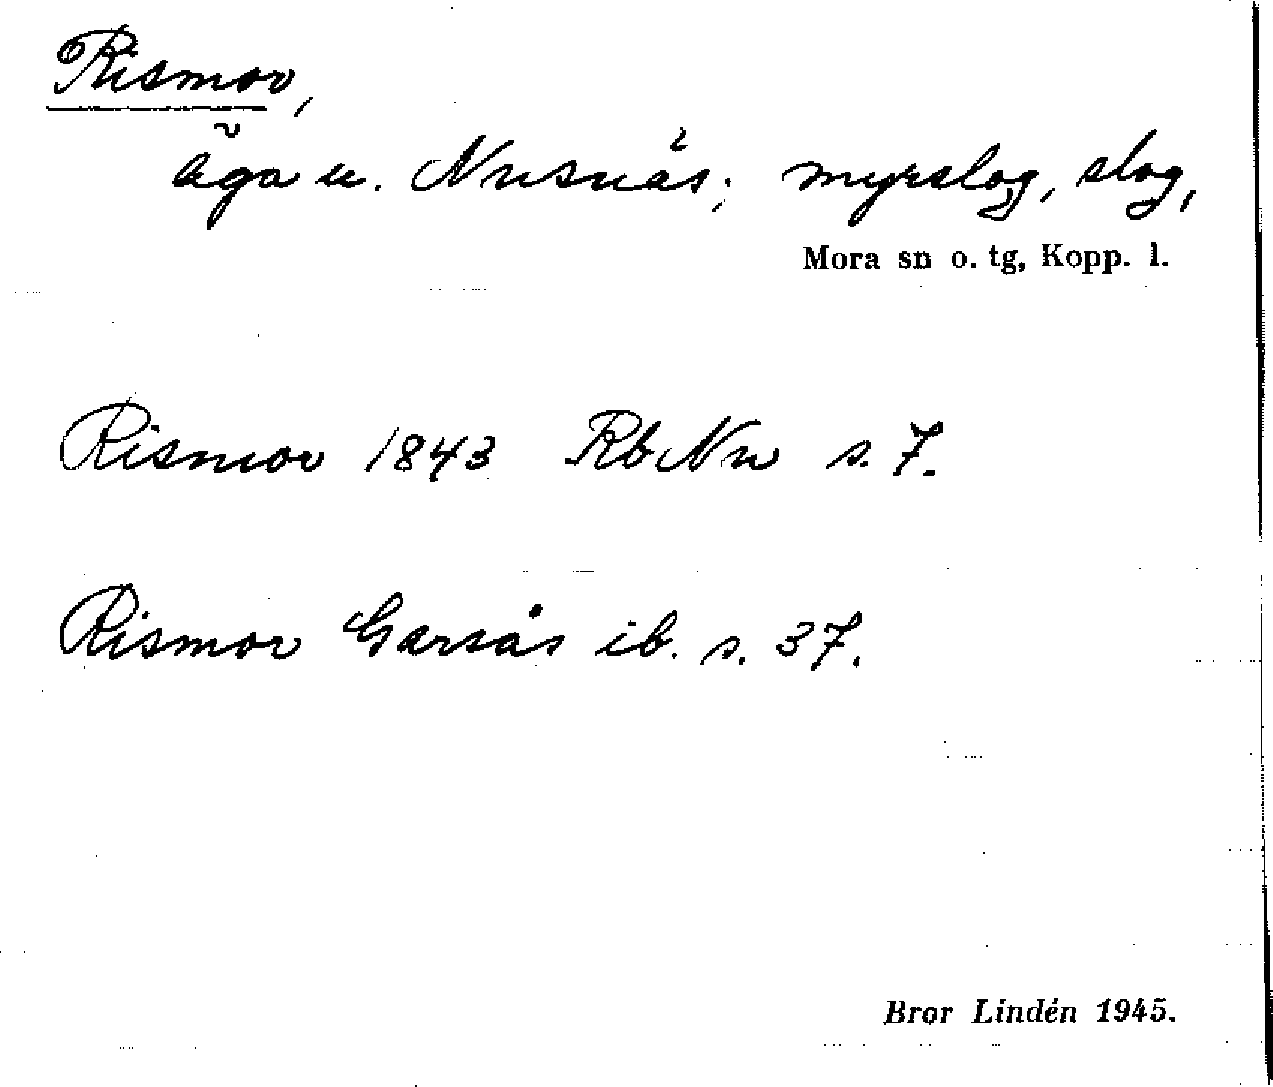 Rismor,
äga u. Nusnäs; myrslog, slog,
Mora sn o. tg, Kopp. l.
Rismor 1843 RbNu s. 7.
Rismor Garsås ib. s. 37.
Bror Lindén 1945.